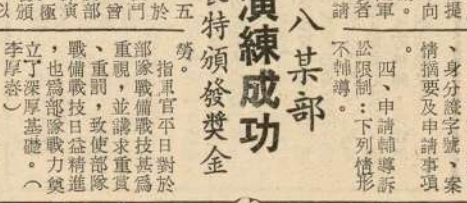 提
向
、身分識字號、案
情摘要及申請事項
。
四、申請輔導訴
訟限制：下列情形
不輔導。
軍
請
八某部
演練成功
長特頒發獎金
勞。
指揮官平日對於
部隊戰備戰技甚為
重視，並講求重賞
、重罰，致使部隊
戰備戰技日益精進
，也為部隊戰力奠
立了深厚基礎。（
李厚漭）
五
於
門
曾
部
演
極
頒
以